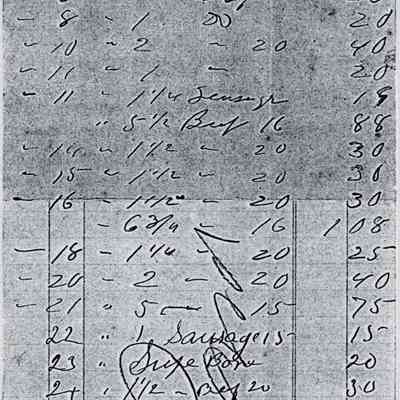 " 8 " 1 20 20
" 10 " 2 " 20 40
" 11 " 1 " 20
" 11 " 1 1/4 Sausage 19
" 5 1/2 Beef 16 88
" 14 " 1 1/2 " 20 30
" 15 " 1 1/2 " 20 30
" 16 " 1 1/2 " 20 30
" 6 3/4 " 16 1 08
" 18 " 1 1/4 " 20 25
" 20 " 2 " 20 40
" 21 " 5 " 15 75
22 " 1 Sausage 15 15
23 " Bone 20
24 " 1 1/2 " Beef 20 30